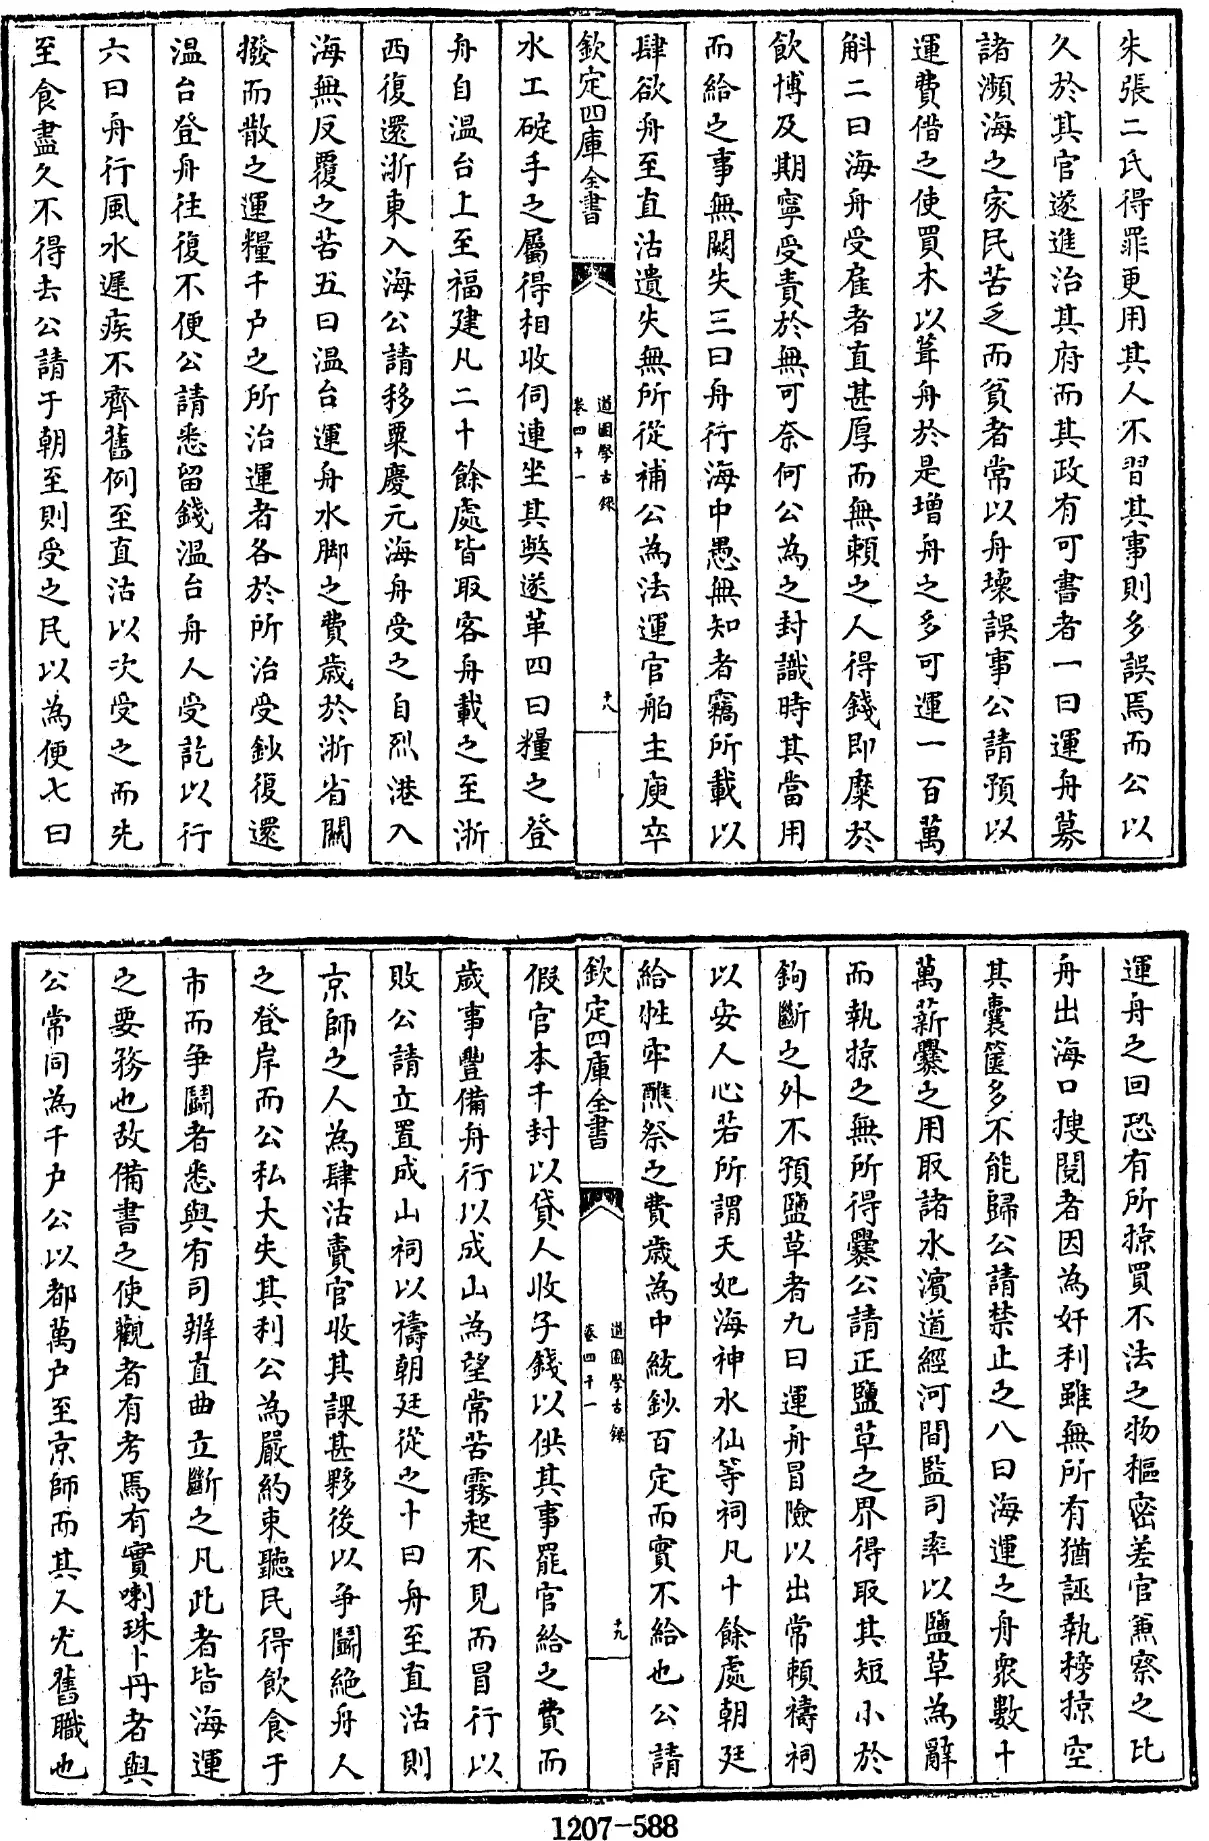 朱張二氏得罪更用其人不習其事則多誤焉而公以
久於其官遂進治其府而其政有可書者一曰運舟募
諸瀕海之家民苦乏而貧者常以舟壞誤事公請預以
運費借之使買木以葺舟於是增舟之多可運一百萬
斛二曰海舟受雇者直甚厚而無賴之人得錢即糜於
飲博及期寧受責於無可奈何公為之封識時其當用
而給之事無闕失三曰舟行海中愚無知者竊所載以
肆欲舟至直沽遺失無所從補公為法運官舶主庾卒
欽定四庫全書
道園學古錄
卷四十一
十八
水工碇手之屬得相收伺連坐其獘遂革四曰糧之登
舟自温台上至福建凡二十餘處皆取客舟載之至浙
西復還浙東入海公請移粟慶元海舟受之自烈港入
海無反覆之苦五曰温台運舟水脚之費歳於浙省闗
撥而散之運糧千户之所治運者各於所治受鈔復還
温台登舟往復不便公請悉留錢温台舟人受訖以行
六曰舟行風水遲疾不齊舊例至直沽以次受之而先
至食盡久不得去公請于朝至則受之民以為便七曰
運舟之回恐有所掠買不法之物樞密差官兼察之比
舟出海口搜閱者因為奸利雖無所有猶誣執榜掠空
其囊篋多不能歸公請禁止之八曰海運之舟衆數十
萬薪爨之用取諸水濱道經河間監司率以鹽草為辭
而執掠之無所得爨公請正鹽草之界得取其短小於
鉤斷之外不預鹽草者九曰運舟冒險以出常頼禱祠
以安人心若所謂天妃海神水仙等祠凡十餘處朝廷
給牲牢醮祭之費歳為中統鈔百定而實不給也公請
欽定四庫全書
道園學古錄
卷四十一
十九
假官本千封以貸人收子錢以供其事罷官給之費而
歳事豐備舟行以成山為望常苦霧起不見而冒行以
敗公請立置成山祠以禱朝廷從之十曰舟至直沽則
京師之人為肆沽賣官收其課甚夥後以爭鬭絶舟人
之登岸而公私大失其利公為嚴約束聽民得飲食于
市而爭鬭者悉與有司辨直曲立斷之凡此者皆海運
之要務也故備書之使觀者有考焉有實喇珠卜丹者與
公常同為千户公以都萬户至京師而其人尤舊職也
1207-588